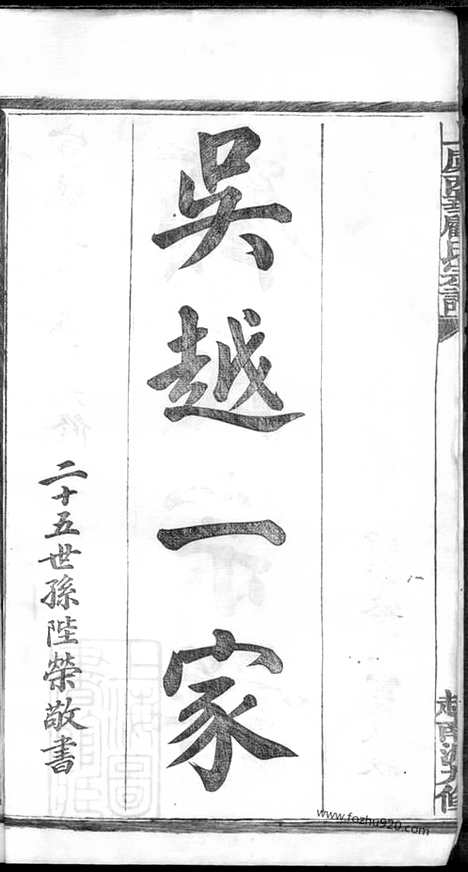 顧氏宗譜
吳越一家
二十五世孫陛榮敬書
www.fozhu920.com